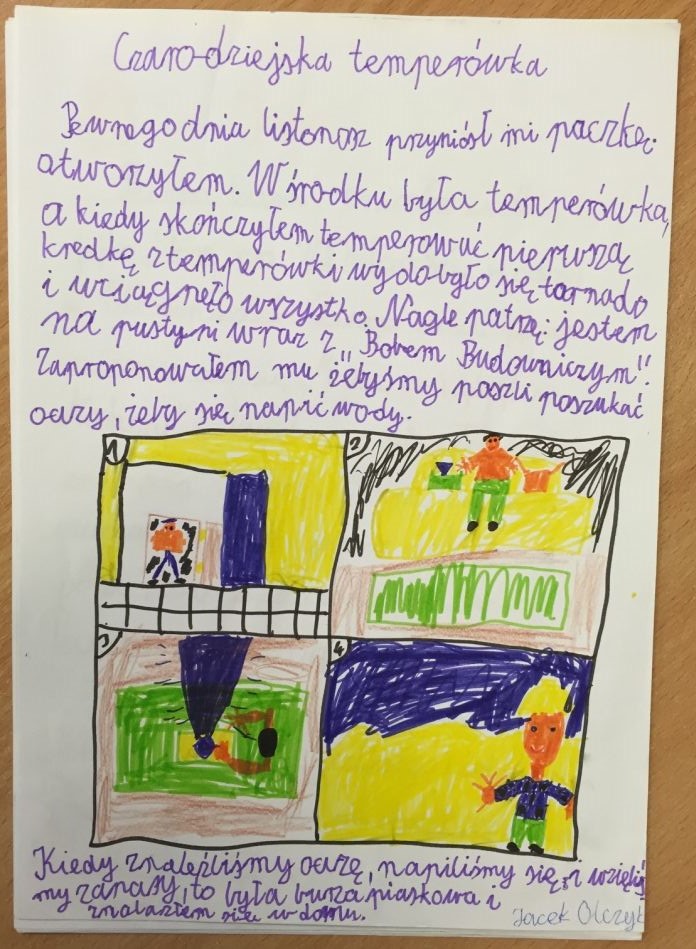 Czarodziejska temperówka
Pewnego dnia listonosz przyniósł mi paczkę.
otworzyłem. W środku była temperówka,
a kiedy skończyłem temperować pierwszą
kredkę z temperówki wydobyło się tornado
i wciągnęło wszystko. Nagle patrzę: jestem
na pustyni wraz z „Bobem Budowniczym".
Zaproponowałem mu żebyśmy poszli poszukać
oazy, żeby się napić wody.
1
2
3
4
Kiedy znaleźliśmy oazę, napiliśmy się i wzięliś
my zapasy, to była burza piaskowa i
znalazłem się w domu.
Jacek Olczyk